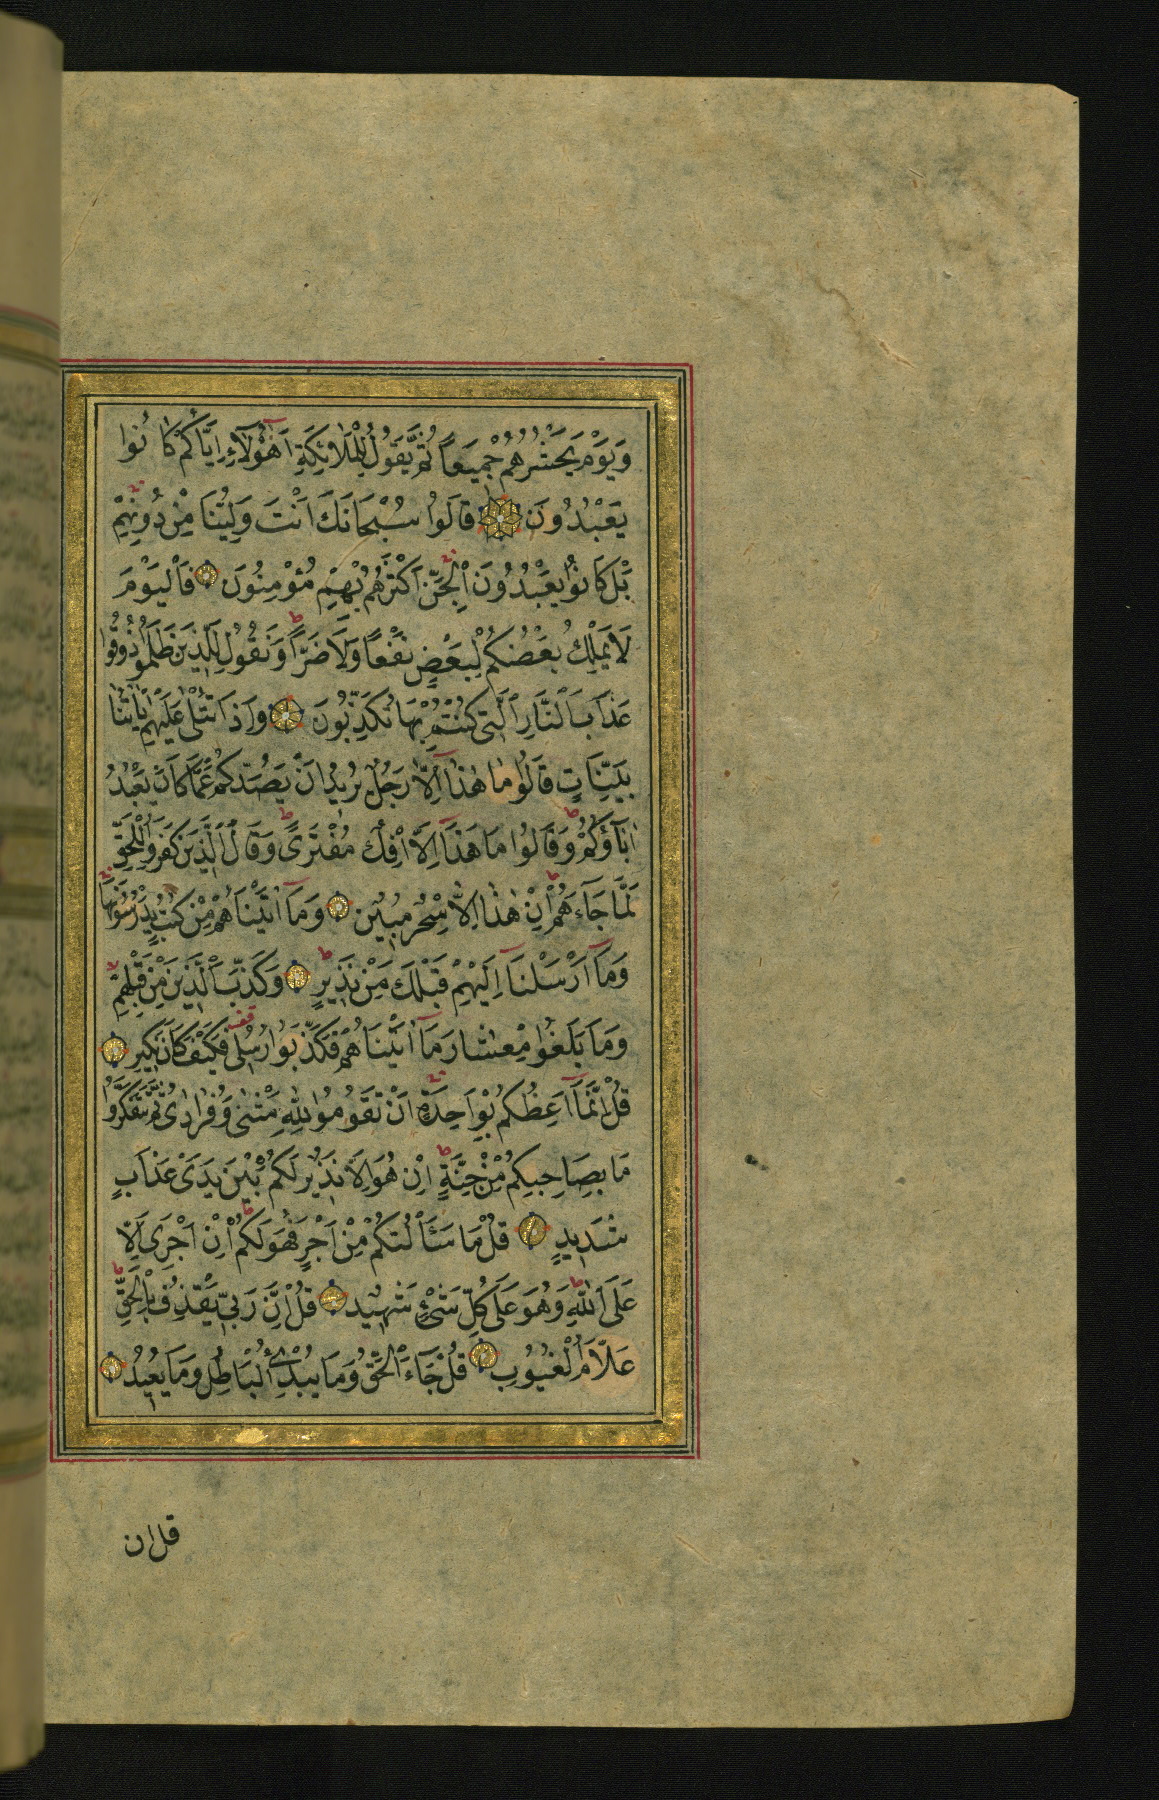 وَيَوْمَ يَحْشُرُهُمْ جَمِيعًا ثُمَّ يَقُولُ لِلْمَلَائِكَةِ أَهَٰؤُلَاءِ إِيَّاكُمْ كَانُوا
يَعْبُدُونَ قَالُوا سُبْحَانَكَ أَنْتَ وَلِيُّنَا مِنْ دُونِهِمْ
بَلْ كَانُوا يَعْبُدُونَ الْجِنَّ أَكْثَرُهُمْ بِهِمْ مُؤْمِنُونَ فَالْيَوْمَ
لَا يَمْلِكُ بَعْضُكُمْ لِبَعْضٍ نَفْعًا وَلَا ضَرًّا وَنَقُولُ لِلَّذِينَ ظَلَمُوا ذُوقُوا
عَذَابَ النَّارِ الَّتِي كُنْتُمْ بِهَا تُكَذِّبُونَ وَإِذَا تُتْلَىٰ عَلَيْهِمْ اٰيَاتُنَا
بَيِّنَاتٍ قَالُوا مَا هٰذَا إِلَّا رَجُلٌ يُرِيدُ أَنْ يَصُدَّكُمْ عَمَّا كَانَ يَعْبُدُ
اٰبَآؤُكُمْ وَقَالُوا مَا هَذَا إِلَّا إِفْكٌ مُفْتَرًى وَقَالَ الَّذِينَ كَفَرُوا لِلْحَقِّ
لَمَّا جَآءَهُمْ إِنْ هٰذَا إِلَّا سِحْرٌ مُبِينٌ وَمَآ اٰتَيْنَاهُمْ مِنْ كُتُبٍ يَدْرُسُونَهَا
وَمَآ أَرْسَلْنَآ إِلَيْهِمْ قَبْلَكَ مِنْ نَذِيرٍ وَكَذَّبَ الَّذِينَ مِنْ قَبْلِهِمْ
وَمَا بَلَغُوا مِعْشَارَ مَآ اٰتَيْنَاهُمْ فَكَذَّبُوا رُسُلِي فَكَيْفَ كَانَ نَكِيرِ
قُلْ إِنَّمَآ أَعِظُكُمْ بِوَاحِدَةٍ أَنْ تَقُومُوا لِلّٰهِ مَثْنٰى وَفُرَادٰى ثُمَّ تَتَفَكَّرُوا
مَا بِصَاحِبِكُمْ مِنْ جِنَّةٍ إِنْ هُوَ إِلَّا نَذِيرٌ لَكُمْ بَيْنَ يَدَيْ عَذَابٍ
شَدِيدٍ قُلْ مَا سَأَلْتُكُمْ مِنْ أَجْرٍ فَهُوَ لَكُمْ إِنْ أَجْرِيَ إِلَّا
عَلَى اللّٰهِ وَهُوَ عَلَى كُلِّ شَيْءٍ شَهِيدٌ قُلْ إِنَّ رَبِّي يَقْذِفُ بِالْحَقِّ
عَلَّامُ الْغُيُوبِ قُلْ جَآءَ الْحَقُّ وَمَا يُبْدِئُ الْبَاطِلُ وَمَا يُعِيدُ
قل ان